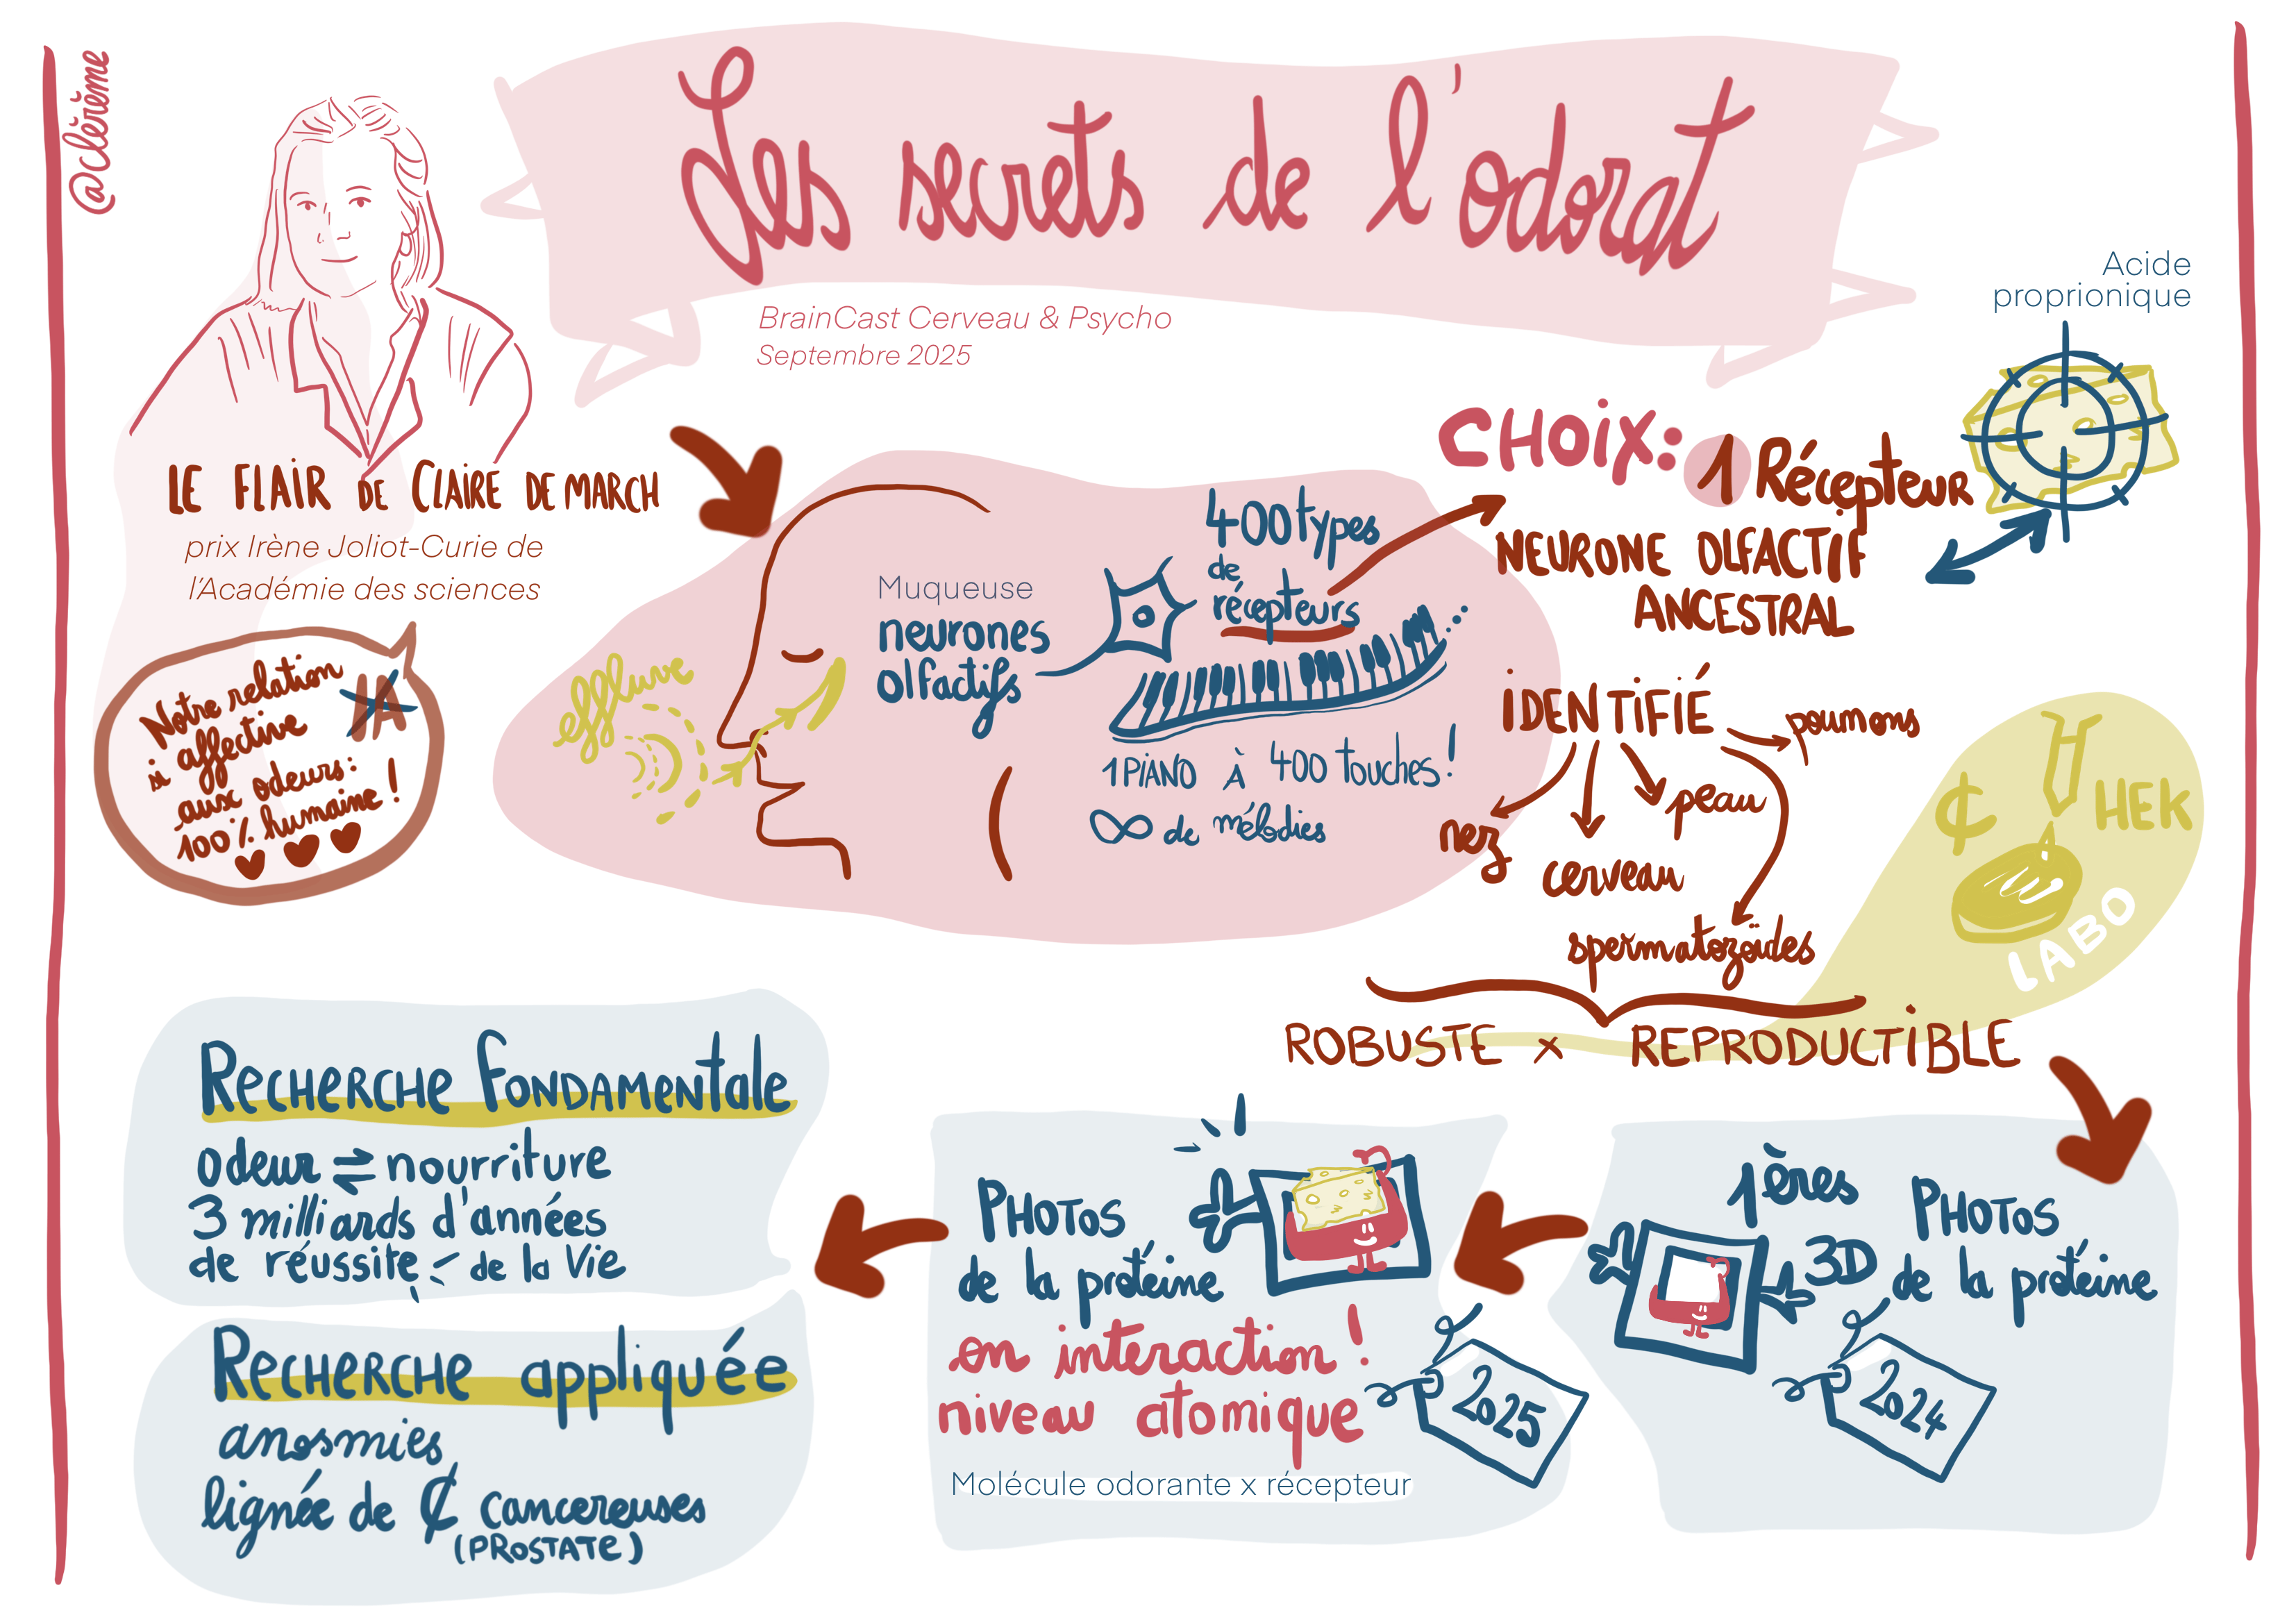 @clérème
Les secrets de l'odorat
BrainCast Cerveau & Psycho
Septembre 2025
LE FLAIR DE CLAIRE DE MARCH
prix Irène Joliot-Curie de
l'Académie des sciences
Notre relation
si affective
aux odeurs:
100% humaine!
IA
effluve
Muqueuse
neurones
olfactifs
400 types
de
récepteurs
1 PIANO À 400 touches!
∞ de mélodies
CHOIX: 1 Récepteur
NEURONE OLFACTIF
ANCESTRAL
Acide
proprionique
IDENTIFIÉ
poumons
peau
nez
cerveau
spermatozoïdes
₵ HEK
LABO
ROBUSTE x REPRODUCTIBLE
1ères
PHOTOS
3D
de la protéine
2024
PHOTOS
de la protéine
en interaction!
niveau atomique
2025
Molécule odorante x récepteur
RECHERCHE FONDAMENtale
odeur ⇌ nourriture
3 milliards d'années
de réussite de la Vie
RECHERCHE appliquée
anosmies
lignée de ₵ cancereuses
(PROSTATE)